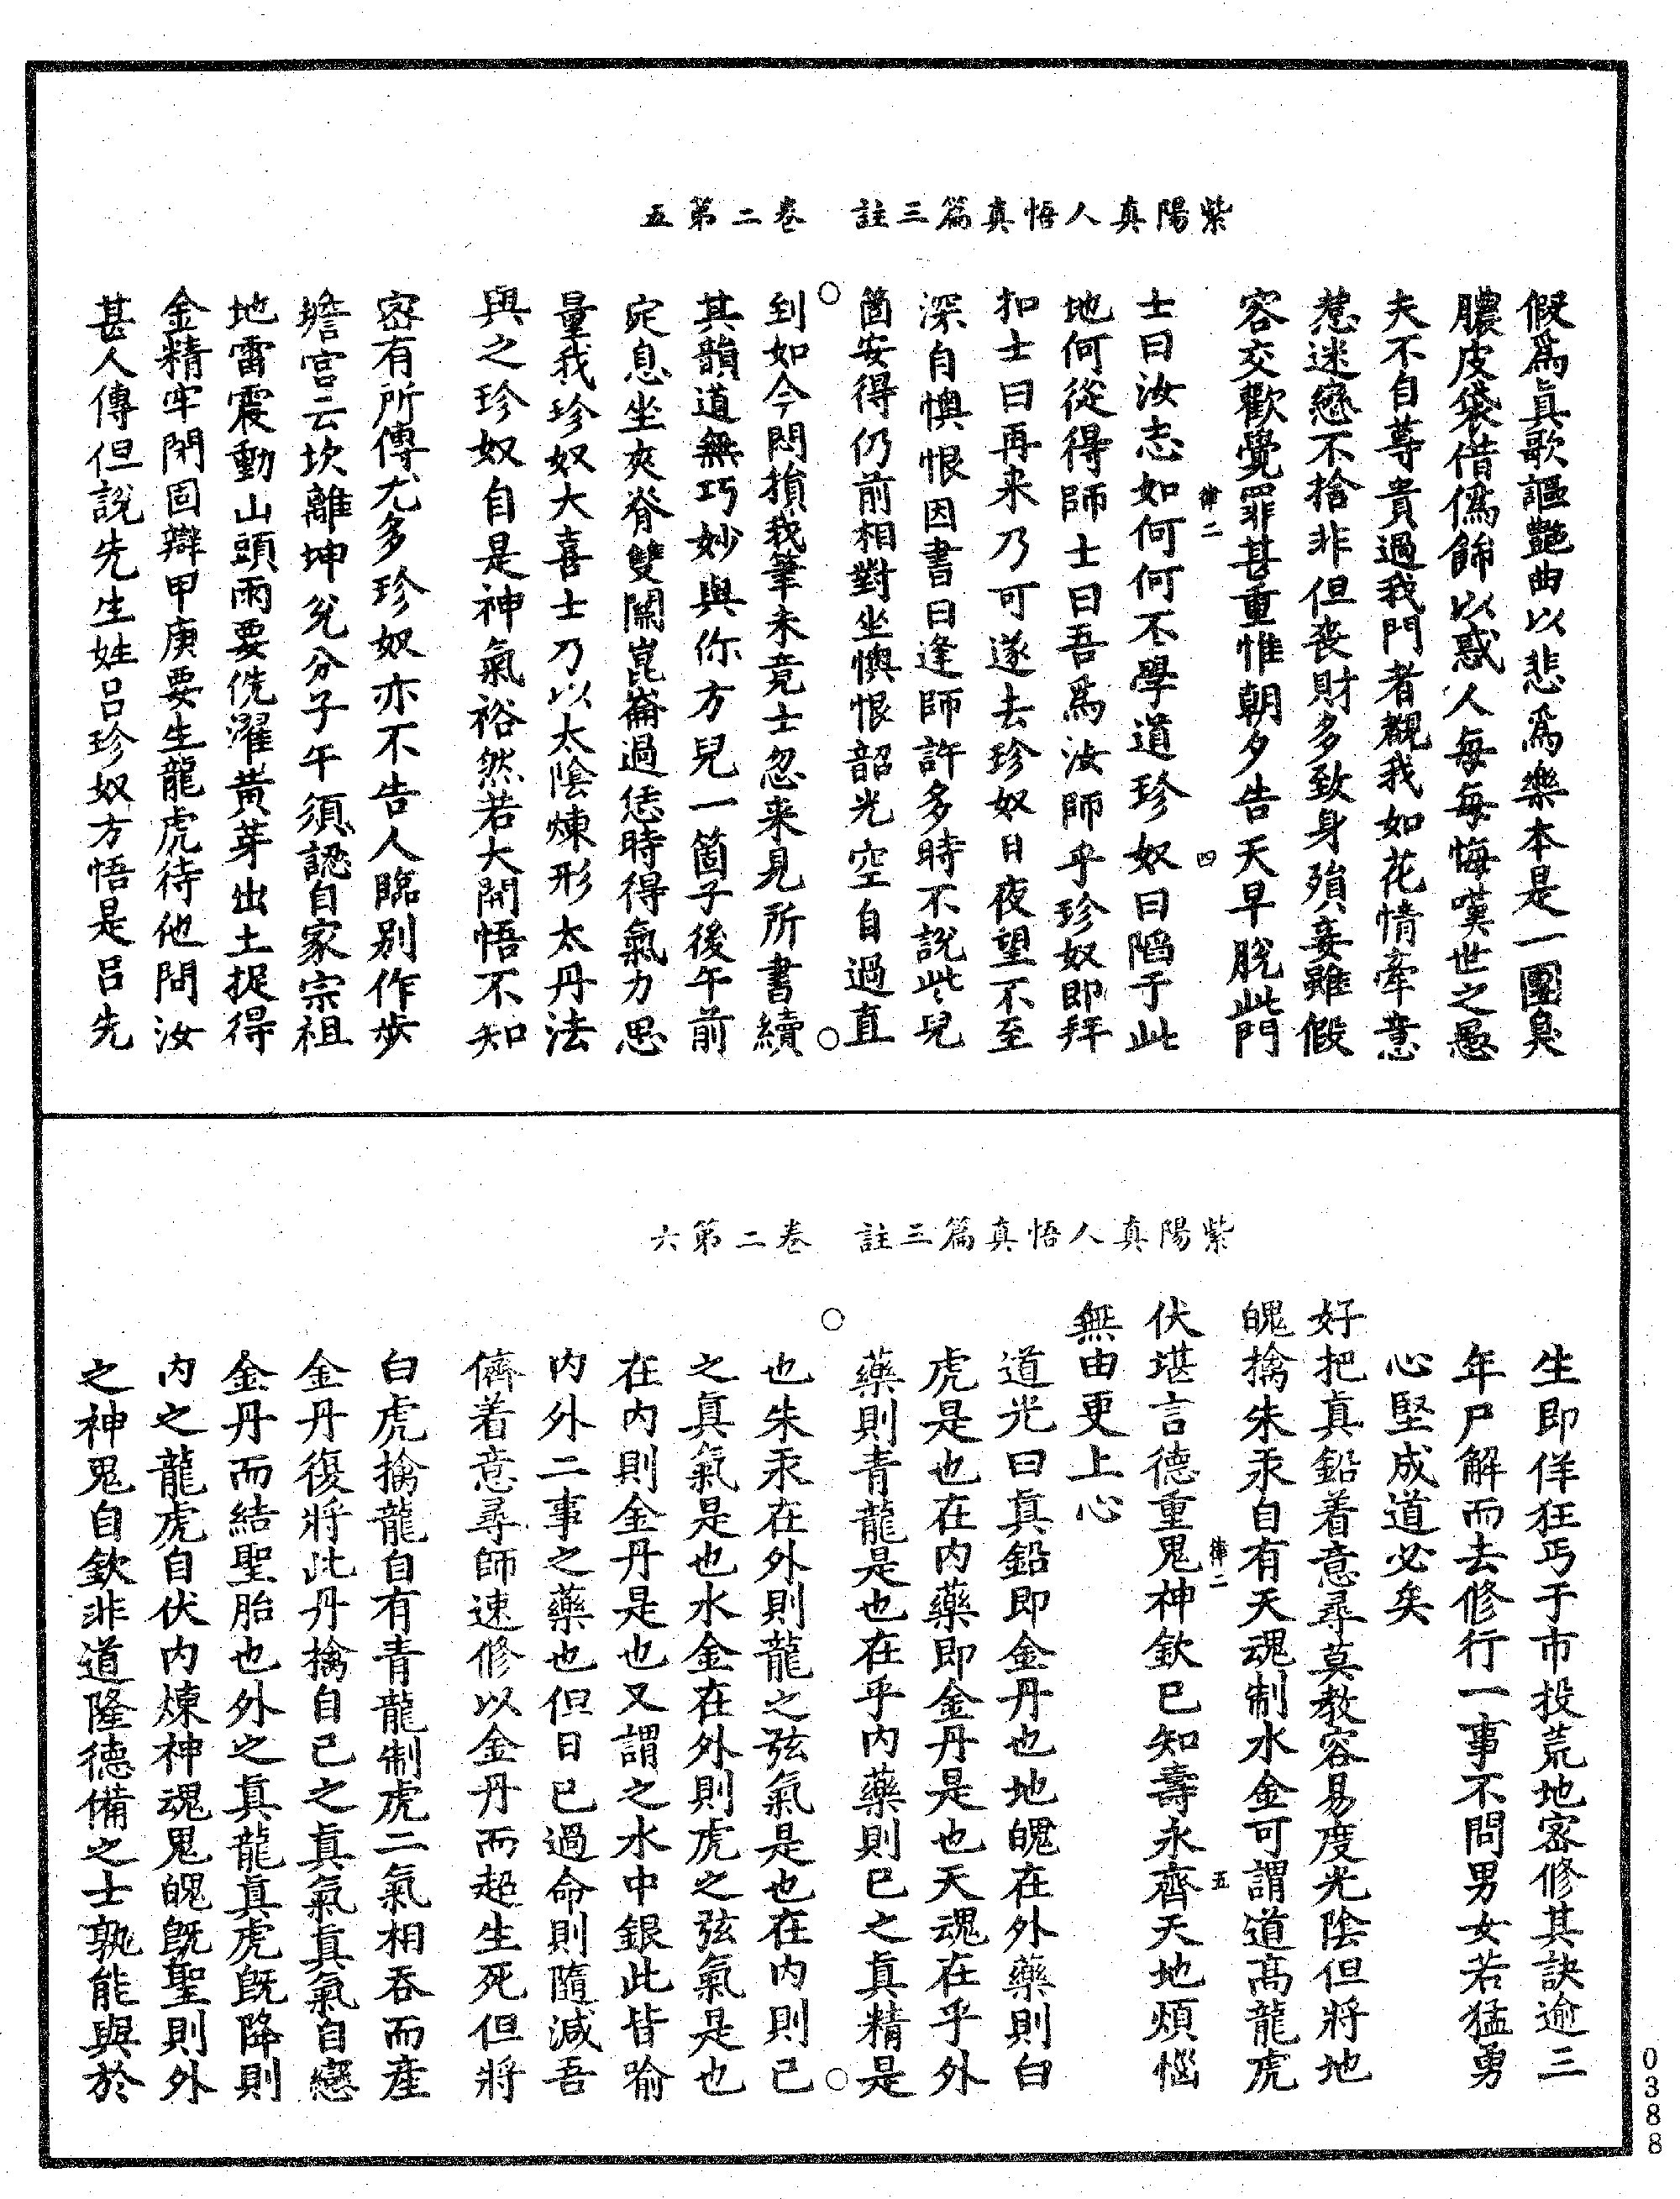 紫陽真人悟真篇三註　卷二第五
假爲真歌謳艷曲以悲爲樂本是一團臭
膿皮袋借僞餙以惑人每每悔嘆世之愚
夫不自尊貴過我門者覩我如花情牽意
惹迷戀不捨非但丧財多致身殞妾雖假
容交歡覺罪甚重惟朝夕告天早脫此門
律二　四
士曰汝志如何何不學道珍奴曰䧟于此
地何從得師士曰吾爲汝師乎珍奴即拜
扣士曰再来乃可遂去珍奴日夜望不至
深自懊恨因書曰逢師許多時不說些兒
箇安得仍前相對坐懊恨韶光空自過直
到如今悶損我筆未竟士忽来見所書續
其韻道無巧妙與你方兒一箇子後午前
定息坐夾脊雙關崑崙過恁時得氣力思
量我珍奴大喜士乃以太陰煉形太丹法
與之珍奴自是神氣裕然若大開悟不知
密有所傳尤多珍奴亦不告人臨别作步
蟾宫云坎離坤兊分子午須認自家宗祖
地雷震動山頭雨要洗濯黄芽出土捉得
金精牢閉固辯甲庚要生龍虎待他問汝
甚人傳但說先生姓吕珍奴方悟是吕先
紫陽真人悟真篇三註　卷二第六
生即佯狂丐于市投荒地密修其訣逾三
年尸解而去修行一事不問男女若猛勇
心堅成道必矣
好把真鉛着意尋莫教容易度光陰但將地
魄擒朱汞自有天魂制水金可謂道高龍虎
伏堪言德重鬼神欽已知壽永齊天地煩惱
律二　五
無由更上心
道光曰真鉛即金丹也地魄在外藥則白
虎是也在内藥即金丹是也天魂在乎外
藥則青龍是也在乎内藥則已之真精是
也朱汞在外則龍之弦氣是也在内則己
之真氣是也水金在外則虎之弦氣是也
在内則金丹是也又謂之水中銀此皆喻
内外二事之藥也但日已過命則隨減吾
儕着意尋師速修以金丹而超生死但將
白虎擒龍自有青龍制虎二氣相吞而產
金丹復將此丹擒自己之真氣真氣自戀
金丹而結聖胎也外之真龍真虎旣降則
内之龍虎自伏内煉神魂鬼魄旣聖則外
之神鬼自欽非道隆德備之士孰能與於
0388